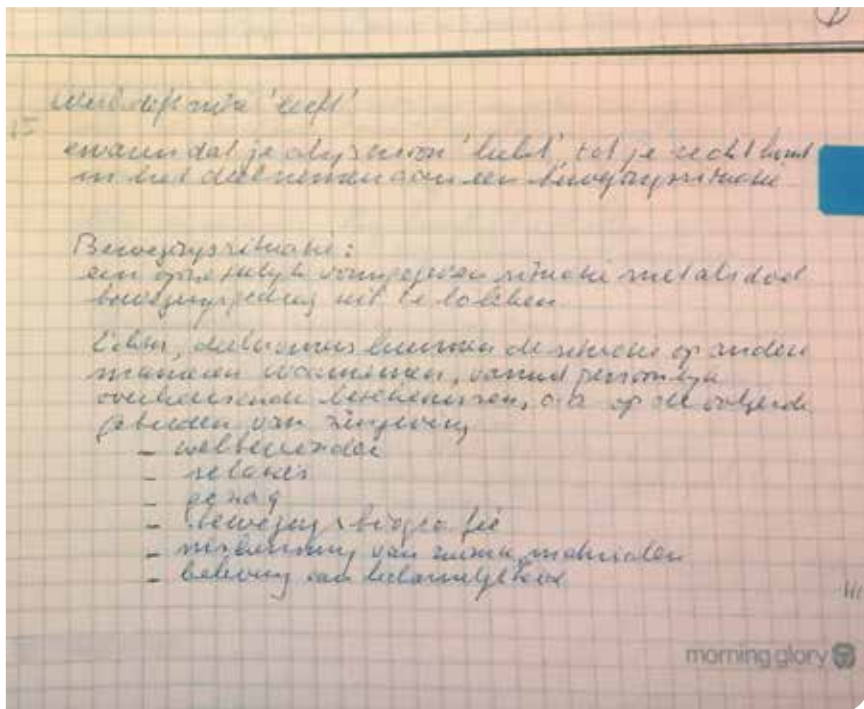 'leeft'
15
ervaren dat je als persoon 'lukt', tot je recht komt
in het deelnemen aan een bewegingssituatie
Bewegingssituatie:
een opzettelijk vormgegeven situatie met als doel
bewegingsgedrag uit te lokken
Echter, deelnemers kunnen de situatie op andere
manieren waarnemen, vanuit persoonlijk
betekenissen, o.a. op de volgende
gebieden van zingeving
- welbevinden
- relaties
- gezag
- bewegingsbiografie
- verkenning van ruimte, materialen
- beleving van lichamelijkheid
morning glory